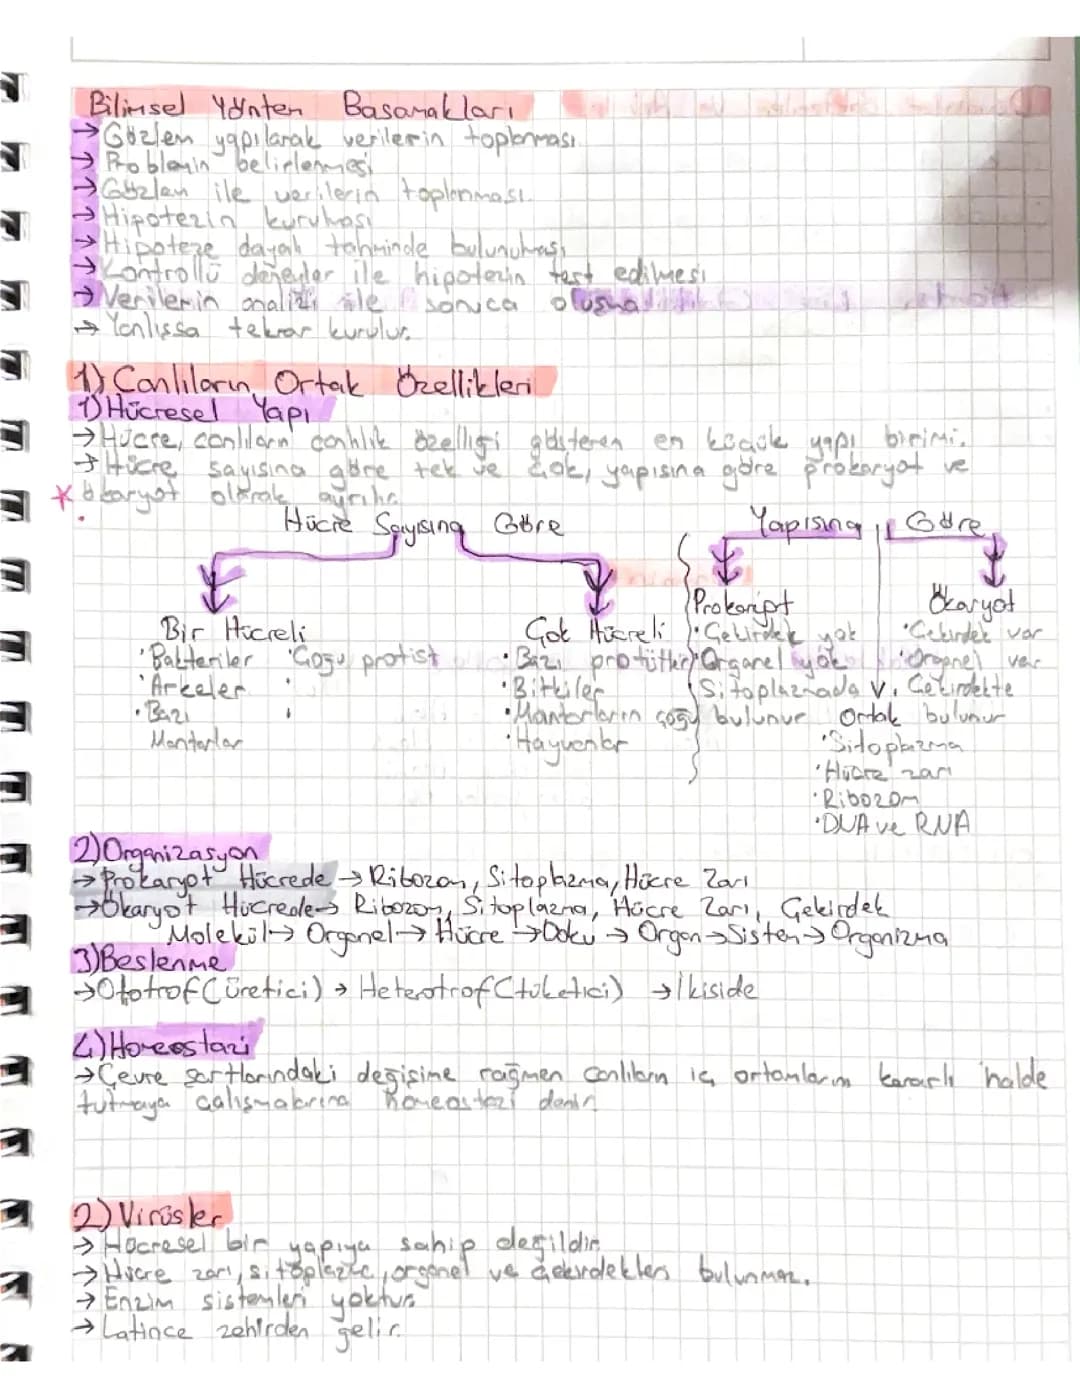 Bilimsel Yönten Basamakları
→ Gözlem yapılarak verilerin toplanması
→ Problemin belirlenmesi
→ Gözlem ile verilerin toplanması.
→ Hipotezin kurulması
→ Hipoteze dayalı tahminde bulunulması
→ Kontrollü deneyler ile hipotezin test edilmesi
→ Verilerin analizi ile sonuca
→ Yanlışsa tekrar kurulur.
1) Canlıların Ortak Özellikleri
1) Hücresel Yapı
→ Hücre, canlıların canlılık özelliği gösteren en küçük yapı birimi.
→ Hücre sayısına göre tek ve çok, yapısına göre prokaryot ve
* ökaryot olarak ayrılır.
Hücre Sayısına Göre
Yapısına Göre
Bir Hücreli
· Bakteriler · Çoğu protist
· Arkeler
· Bazı
Mantarlar
Çok Hücreli
· Bazı
· Bitkiler
· Mantarların çoğu
· Hayvanlar
Prokaryot
· Çekirdek yok
· Organel yok
Sitoplazmada
bulunur
Ökaryot
· Çekirdek var
· Organel var
Çekirdekte
bulunur
Ortak
· Sitoplazma
· Hücre zarı
· Ribozom
· DNA ve RNA
2) Organizasyon
→ Prokaryot Hücrede → Ribozom, Sitoplazma, Hücre Zarı
→ Ökaryot Hücrede → Ribozom, Sitoplazma, Hücre Zarı, Çekirdek
Molekül → Organel → Hücre → Doku → Organ → Sistem → Organizma
3) Beslenme
→ Ototrof (üretici) → Heterotrof (tüketici) → İkiside
4) Homeostazi
→ Çevre şartlarındaki değişime rağmen canlıların iç ortamlarını kararlı halde
tutmaya çalışmalarına homeostazi denir.
2) Virüsler
→ Hücresel bir yapıya sahip değildir
→ Hücre zarı, organel ve çekirdekleri bulunmaz.
→ Enzim sistemleri yoktur.
→ Latince zehirden gelir.